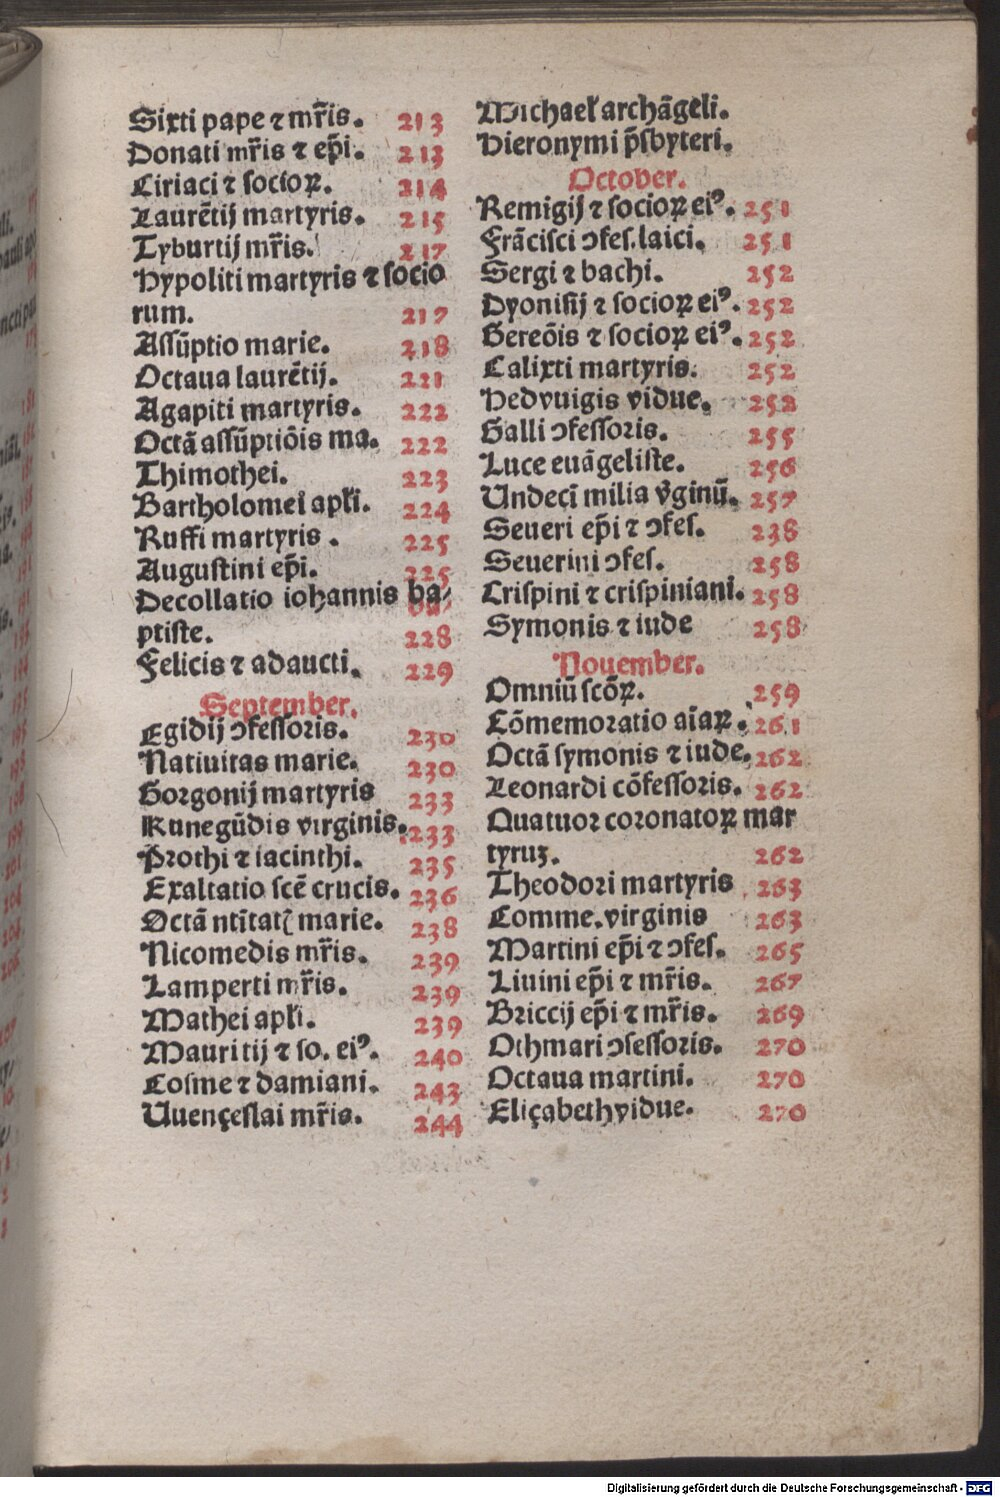 Sixti pape ⁊ mr̃is. 213
Donati mr̃is ⁊ ep̃i. 213
Ciriaci ⁊ socioꝝ. 214
Laurẽtij martyris. 215
Tyburtij mr̃is. 217
Hypoliti martyris ⁊ socio
rum. 217
Assũptio marie. 218
Octaua laurẽtij. 221
Agapiti martyris. 222
Octã assũptiõis ma. 222
Thimothei. 223
Bartholomei apƚi. 224
Ruffi martyris. 225
Augustini ep̃i. 225
Decollatio iohannis ba/
ptiste. 228
Felicis ⁊ adaucti. 229
September.
Egidij ↄfessoris. 230
Natiuitas marie. 230
Gorgonij martyris 233
Kunegũdis virginis. 233
Prothi ⁊ iacinthi. 235
Exaltatio scẽ crucis. 236
Octã nt̃itatꝭ marie. 238
Nicomedis mr̃is. 239
Lamperti mr̃is. 239
Mathei apƚi. 239
Mauritij ⁊ so. eiꝰ. 240
Cosme ⁊ damiani. 243
Vuençeslai mr̃is. 244
Michaeƚ archãgeli.
Hieronymi p̃sbyteri.
October.
Remigij ⁊ socioꝝ eiꝰ. 251
Frãcisci ↄfes. laici. 251
Sergi ⁊ bachi. 252
Dyonisij ⁊ socioꝝ eiꝰ. 252
Gereõis ⁊ socioꝝ eiꝰ. 252
Calixti martyris. 252
Hedvuigis vidue. 252
Galli ↄfessoris. 255
Luce euãgeliste. 256
Undecĩ milia v̓ginũ. 257
Seueri ep̃i ⁊ ↄfes. 238
Seuerini ↄfes. 258
Crispini ⁊ crispiniani. 258
Symonis ⁊ iude 258
November.
Omniũ scõꝝ. 259
Cõmemoratio aĩaꝝ. 261
Octã symonis ⁊ iude. 262
Leonardi cõfessoris. 262
Quatuor coronatoꝝ mar
tyruꝫ. 262
Theodori martyris 263
Comme. virginis 263
Martini ep̃i ⁊ ↄfes. 265
Liuini ep̃i ⁊ mr̃is. 267
Briccij ep̃i ⁊ mr̃is. 269
Othmari ↄfessoris. 270
Octaua martini. 270
Eliçabeth vidue. 270
Digitalisierung gefördert durch die Deutsche Forschungsgemeinschaft - DFG